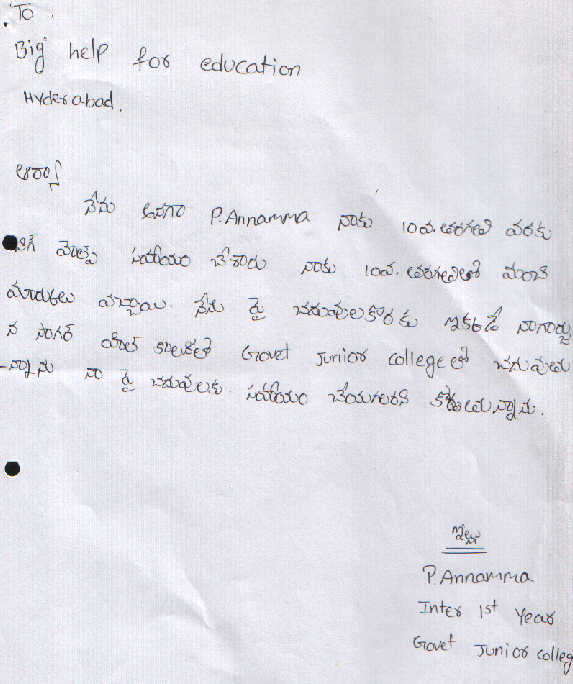 To
Big help for education
Hyderabad.
ఆర్యా
నేను అనగా P.Annamma నాకు 10వ.తరగతి వరకు
బిగ్ హెల్ప్ సహాయం చేశారు నాకు 10వ.తరగతిలో మంచి
మార్కులు వచ్చాయి. నేను పై చదువులకొరకు ఇక్కడే నాగార్జు
న సాగర్ హిల్ కాలనీలో Govet Junior college లో చదువుతు
-న్నాను నా పై చదువులకు సహాయం చేయగలరని కోరుతున్నాను.
ఇట్లు
P.Annamma
Inter 1st Year
Govet Junior colleg